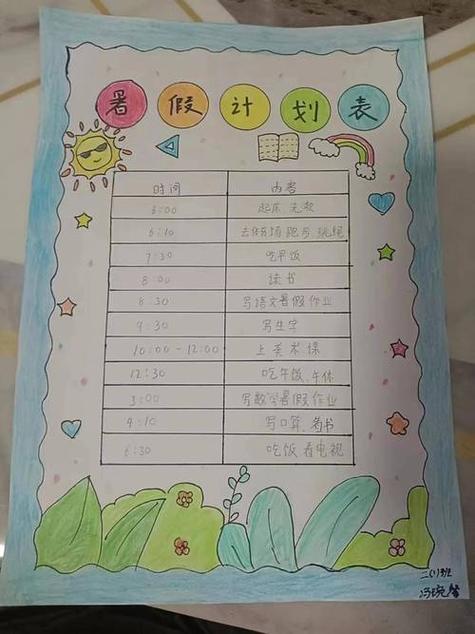 暑假计划表
时间 内容
6:00 起床 洗漱
6:10 去体育场跑步 跳绳
7:30 吃早饭
8:00 读书
8:30 写语文暑假作业
9:30 写生字
10:00-12:00 上美术课
12:30 吃午饭、午休
3:00 写数学暑假作业
4:10 写口算、看书
6:30 吃饭 看电视
二(1)班